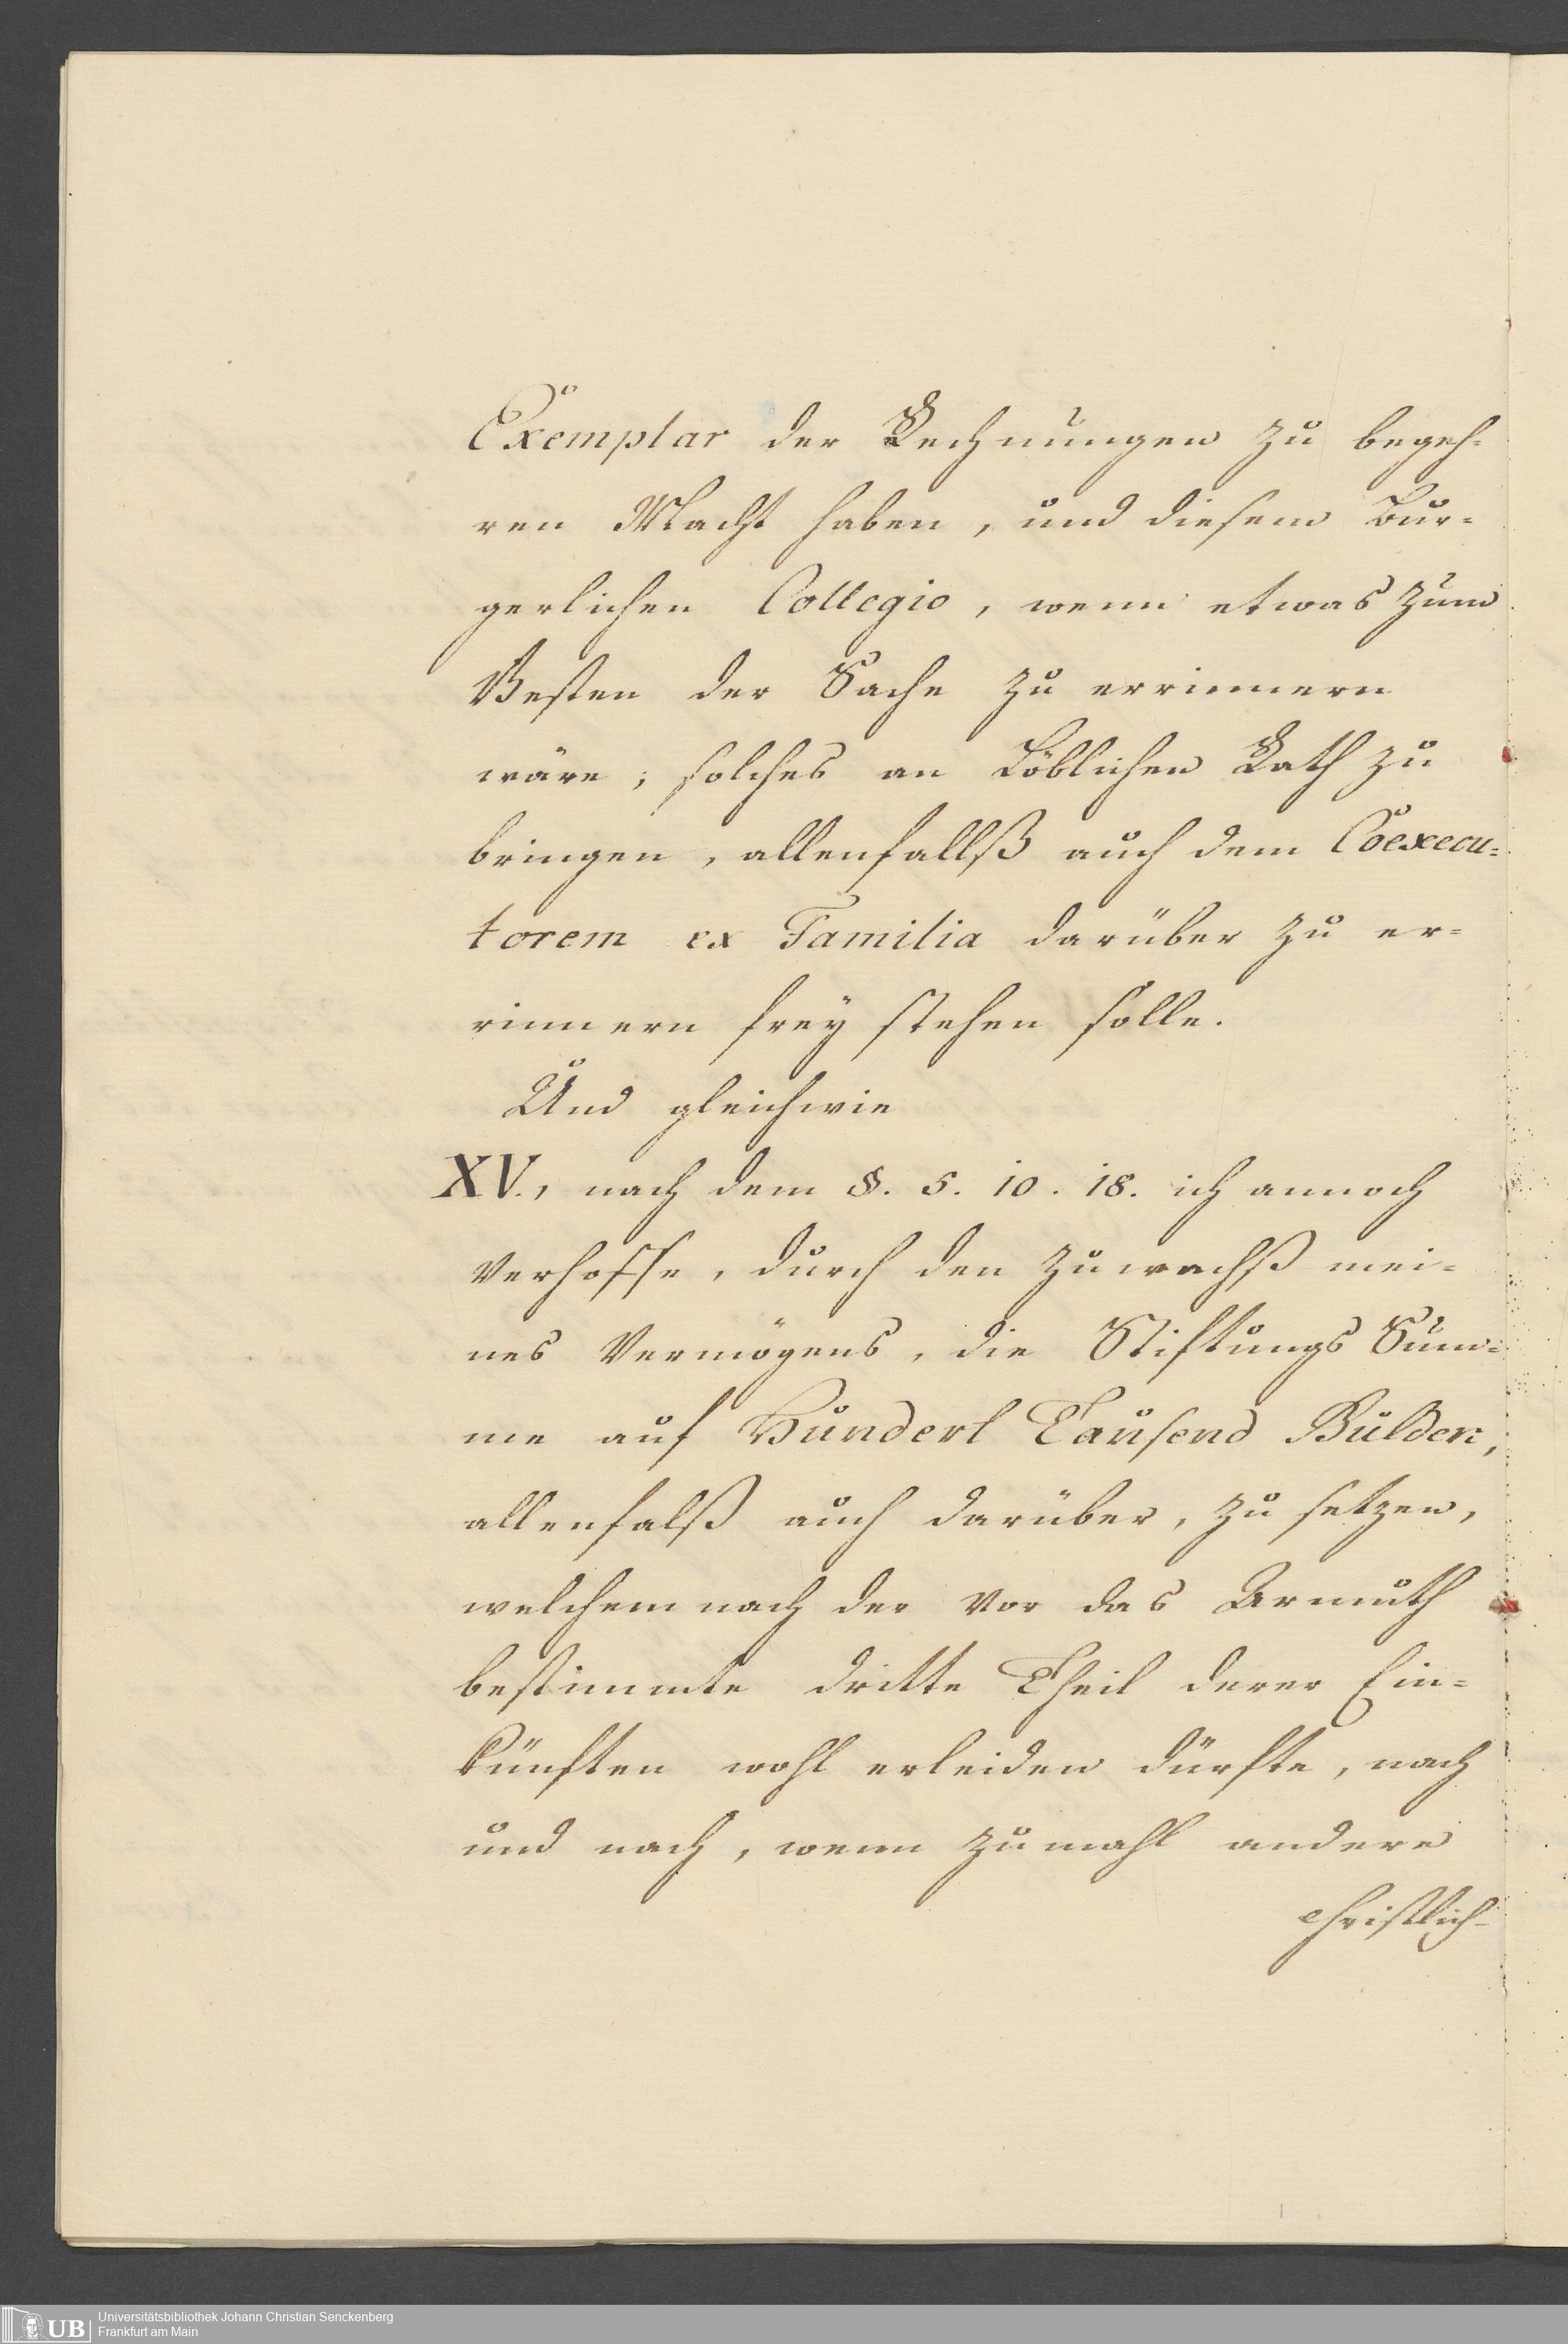 Exemplar der Rechnungen zu begeh-
ren Macht haben, und diesem Bur-
gerlichen Collegio, wenn etwas zum
Besten der Sache zu errinnern
wäre, solches an Löblichen Rath zu
bringen, allenfallß auch dem Coexecu-
torem ex Familia darüber zu er-
rinnern frey stehen solle.
Und gleichwie
XV., nach dem §. 5. 10. 18. ich annoch
verhoffe, durch den Zuwachß mei-
nes Vermögens, die Stiftungs Sum-
me auf Hundert Tausend Gulden,
allenfalß auch darüber, zu setzen,
welchemnach der vor das Armuth
bestimmte dritte Theil derer Ein-
künften wohl erleiden dürfte, nach
und nach, wenn zumahl andere
christlich-
UB
Universitätsbibliothek Johann Christian Senckenberg
Frankfurt am Main